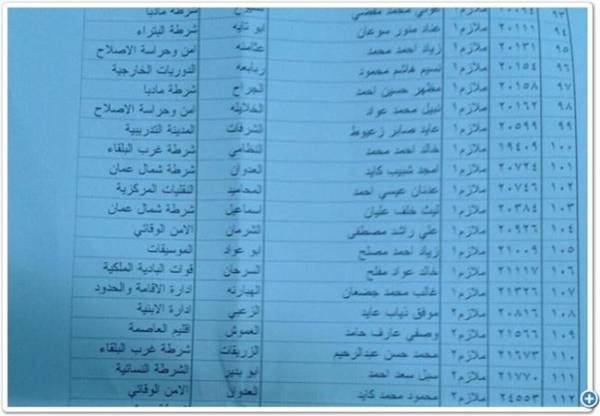 ٩٣ ٢٠٠٦٤ ملازم١ عوني محمد مفضي شرطة مادبا
٩٤ ٢٠١١١ ملازم١ عناد منور سوعان ابو تايه شرطة البتراء
٩٥ ٢٠١٣١ ملازم١ زياد احمد محمد عثامنه امن وحراسة الاصلاح
٩٦ ٢٠١٥٤ ملازم١ نسيم هاشم محمود ربابعه الدوريات الخارجية
٩٧ ٢٠١٥٨ ملازم١ مظهر حسين احمد الجراح شرطة مادبا
٩٨ ٢٠١٦٢ ملازم١ نبيل محمد عواد الخلايله امن وحراسة الاصلاح
٩٩ ٢٠٥٩٩ ملازم١ عايد صابر زعيوط الشرفات المدينة التدريبية
١٠٠ ١٩٤٠٩ ملازم١ خالد احمد محمد النظامي شرطة غرب البلقاء
١٠١ ٢٠٧٢٤ ملازم١ امجد شبيب كايد العدوان شرطة شمال عمان
١٠٢ ٢٠٧٤٦ ملازم١ عدنان عيسى احمد المحاميد النقليات المركزية
١٠٣ ٢٠٣٨٤ ملازم١ ليث خلف عليان اسماعيل شرطة شمال عمان
١٠٤ ٢٠٩٢٦ ملازم١ علي راشد مصطفى الشرمان الامن الوقائي
١٠٥ ٢١٠٠٩ ملازم١ زياد احمد مصلح ابو عواد الموسيقات
١٠٦ ٢١١١٧ ملازم١ خالد عواد مفلح السرحان قوات البادية الملكية
١٠٧ ٢١٣٢٦ ملازم١ غالب محمد جضعان الهبارنه ادارة الاقامة والحدود
١٠٨ ٢٠٨١٦ ملازم٢ موفق ذياب عايد الزعبي ادارة الابنية
١٠٩ ٢١٥٦٦ ملازم٢ وصفي عارف حامد العموش اقليم العاصمة
١١٠ ٢١٦٧٣ ملازم٢ محمد حسن عبدالرحيم الزريقات شرطة غرب البلقاء
١١١ ٢١٧٧٠ ملازم٢ سعد احمد ابو بندر الشرطة النسائية
١١٢ ٢٤٥٥٣ ملازم٢ محمود محمد كايد العدوان الامن الوقائي